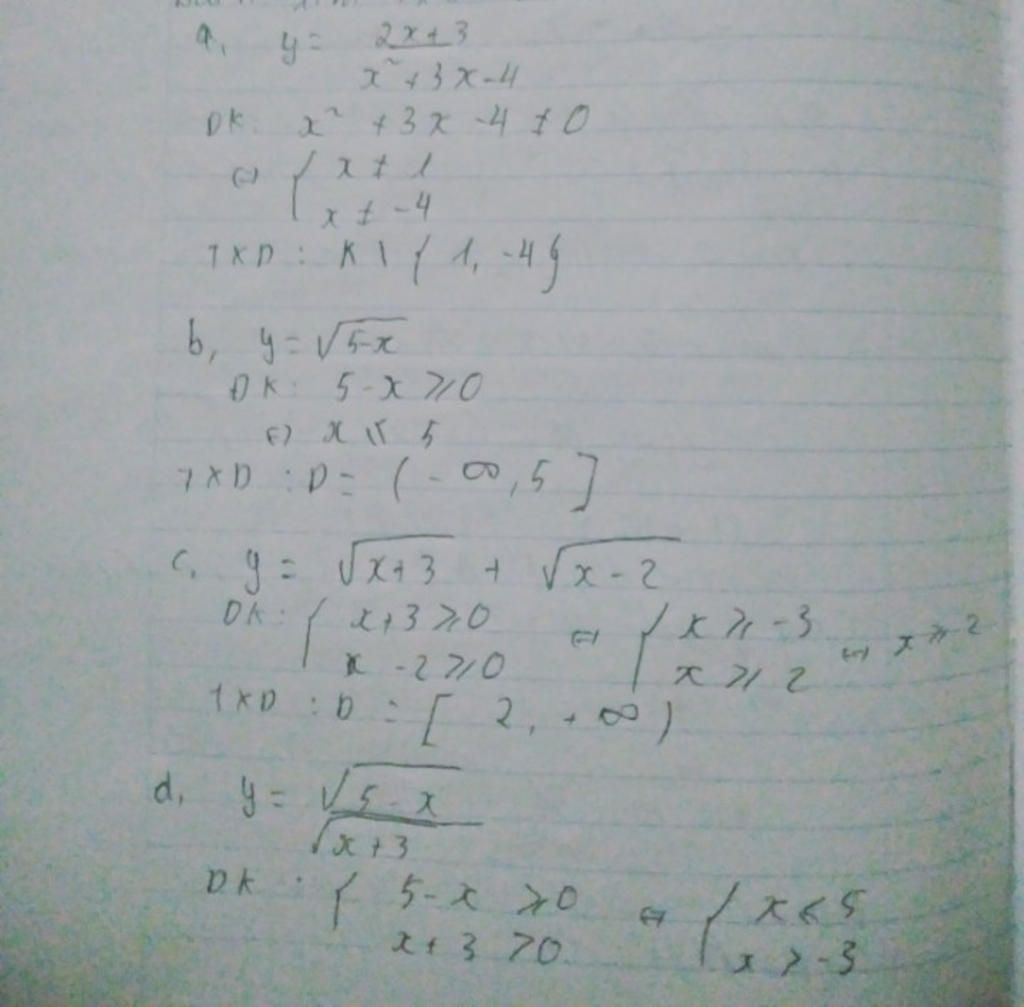 a, y = 2x+3 / x²+3x-4
ĐK: x² +3x -4 ≠ 0
⇔ { x ≠ 1
x ≠ -4
TXD : R \ { 1, -4 }
b, y = √5-x
ĐK: 5-x ⩾ 0
⇔ x ⩽ 5
TXD : D = (-∞, 5 ]
c, y = √x+3 + √x-2
ĐK: { x+3 ⩾ 0 ⇔ { x ⩾ -3 ⇔ x ⩾ 2
x -2 ⩾ 0 x ⩾ 2
TXD : D = [ 2, +∞ )
d, y = √5-x / √x+3
ĐK : { 5-x ⩾ 0 ⇔ { x ⩽ 5
x+3 > 0 x > -3